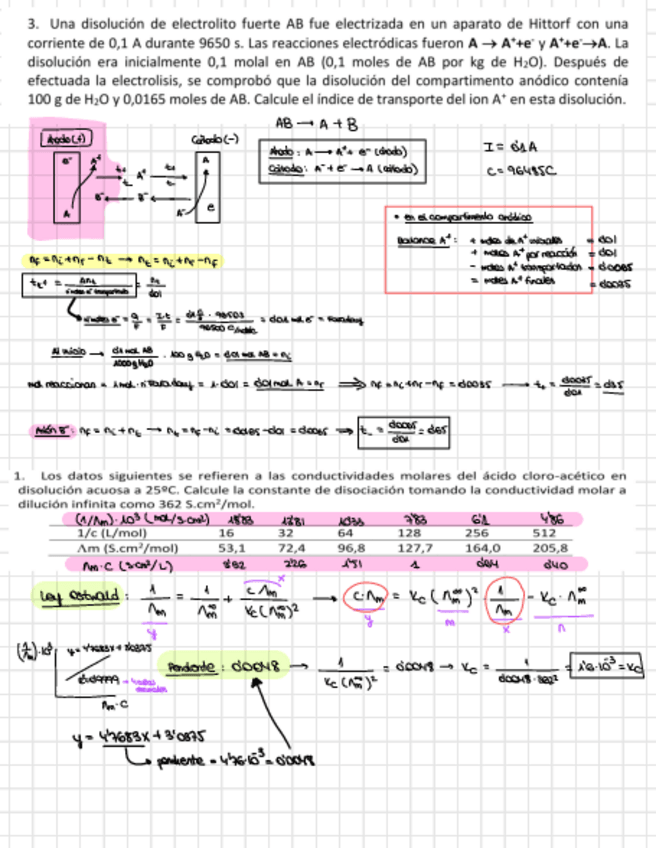 3. Una disolución de electrolito fuerte AB fue electrizada en un aparato de Hittorf con una
corriente de 0,1 A durante 9650 s. Las reacciones electródicas fueron A → A⁺+e⁻ y A⁺+e⁻→A. La
disolución era inicialmente 0,1 molal en AB (0,1 moles de AB por kg de H₂O). Después de
efectuada la electrolisis, se comprobó que la disolución del compartimento anódico contenía
100 g de H₂O y 0,0165 moles de AB. Calcule el índice de transporte del ion A⁺ en esta disolución.
AB → A + B
Ánodo (+)
Cátodo (-)
Ánodo : A → A⁺ + e⁻ (ánodo)
Cátodo : A⁺ + e⁻ → A (cátodo)
I = 0'1 A
C = 96485C
• en el compartimento anódico
Balance A⁺ : + moles de A⁺ iniciales = 0'01
+ moles A⁺ por reacción = 0'01
- moles A⁺ transportados = 0'0035
= moles A⁺ finales
nf = ni + nr - nt → nt = ni + nr - nf
Al inicio → 0'1 mol AB / 1000 g H₂O · 100 g H₂O = 0'01 mol AB = ni
mol reaccionan = 1 mol · nº Faraday = 1 · 0'01 = 0'01 mol A = nr ⟹ nt = ni + nr - nf = 0'0035 → t₊ = 0'0035 / 0'01 = 0'35
Anión B⁻ : nf = ni + nt → nt = nf - ni = 0'0165 - 0'01 = 0'0065 ⟹ t₋ = 0'0065 / 0'01 = 0'65
1. Los datos siguientes se refieren a las conductividades molares del ácido cloro-acético en
disolución acuosa a 25ºC. Calcule la constante de disociación tomando la conductividad molar a
dilución infinita como 362 S.cm²/mol.
(1/Λm)·10³ (mol/S·cm²) 18'83 13'81 10'33 7'83 6'1 4'86
1/c (L/mol) 16 32 64 128 256 512
Λm (S.cm²/mol) 53,1 72,4 96,8 127,7 164,0 205,8
Λm·C (S·cm²/L) 3'32 2'26 1'51 1 0'64 0'40
Ley Ostwald : 1/Λm = 1/Λm^∞ + C Λm / Kc(Λm^∞)² → C·Λm = Kc (Λm^∞)² · 1/Λm - Kc · Λm^∞
y x y m x n
Pendiente : 0'0048 → 1 / Kc (Λm^∞)² = 0'0048 → Kc = 1 / 0'0048·362² = 1'6·10⁻³ = Kc
Λm·C
y = 4'7683x + 3'0875
pendiente = 4'76·10⁻³ = 0'0048